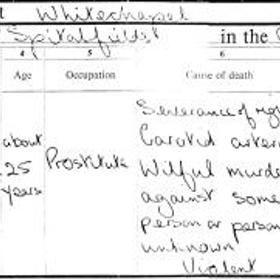 Whitechapel
Spitalfields in the
4 5 6
Age Occupation Cause of death
Severance of rig
about Carotid arter
25 Prostitute Wilful murde
years against some
person or person
unknown
Violent